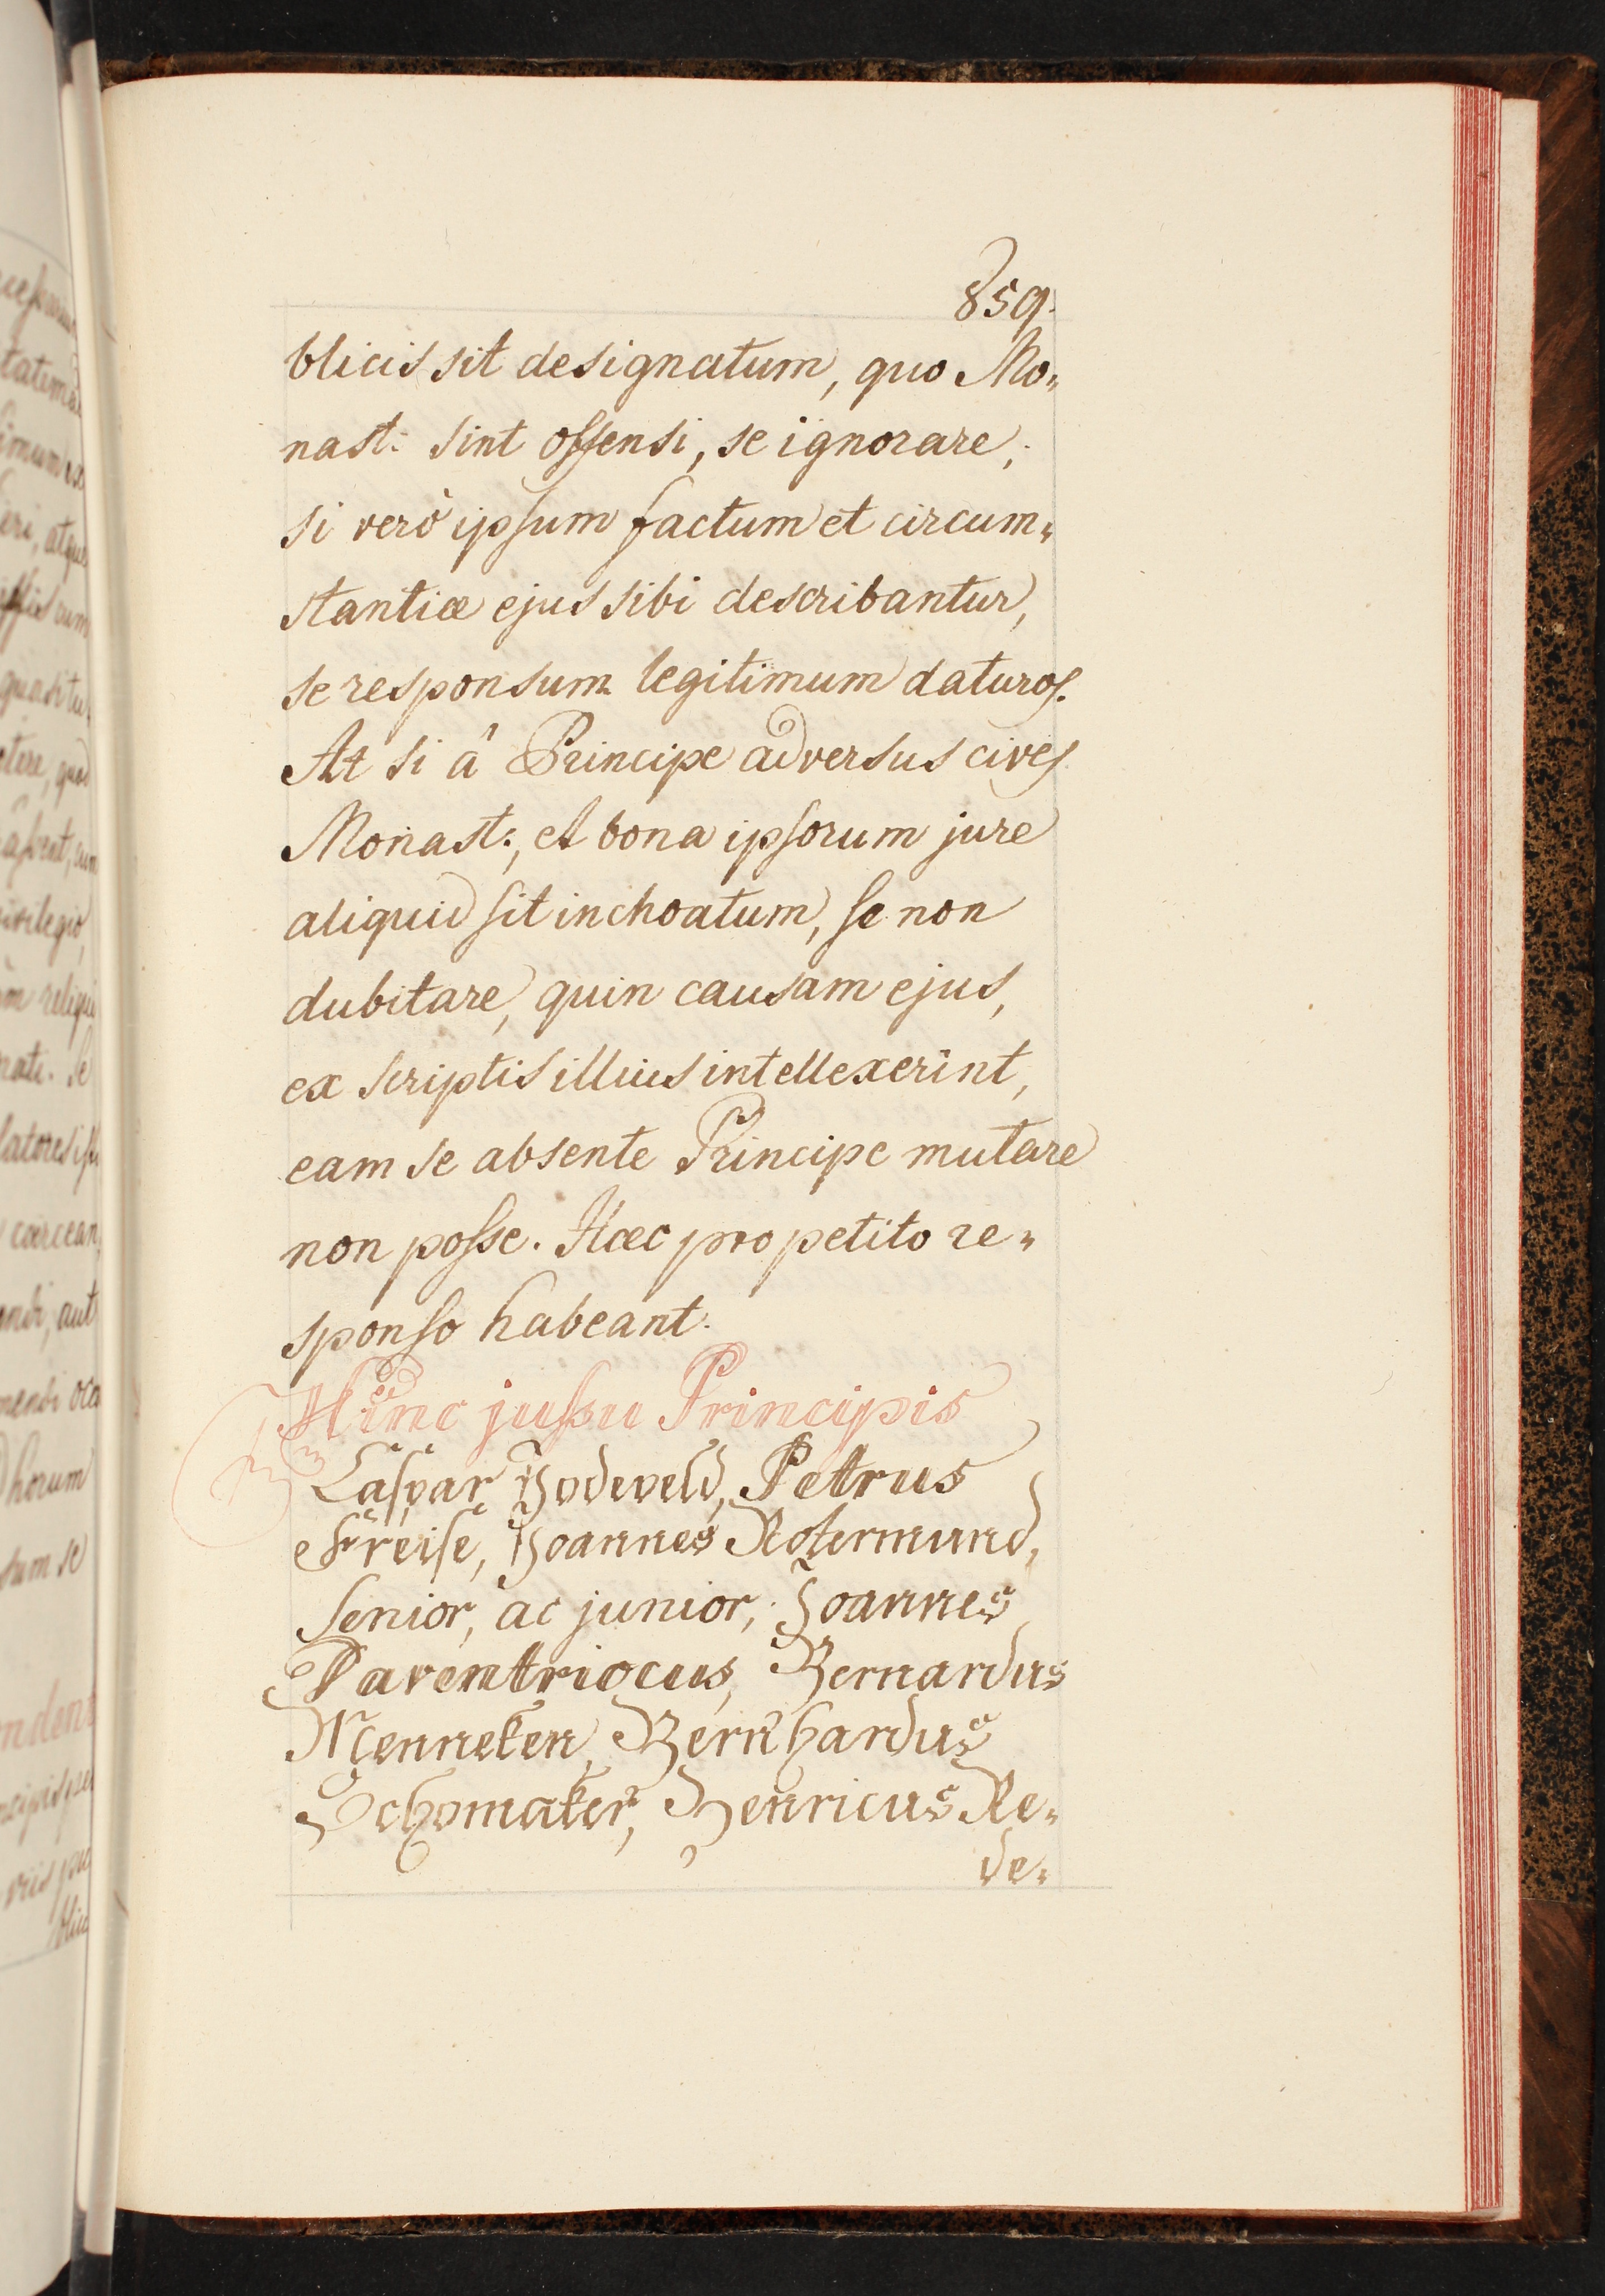 859.
blicis sit designatum, quo Mo„
nast: sint offensi, se ignorare,
si verò ipsum factum et circum„
stantiæ ejus sibi describantur,
se responsum legitimum daturos.
At si â Principe adversus cives
Monast:, et bona ipsorum jure
aliquid sit inchoatum, se non
dubitare, quin causam ejus,
ex scriptis illius intellexerint,
eam se absente Principe mutare
non posse. Hæc pro petito re„
sponso habeant.
Hinc jussu Principis
Caspar Jodeveld, Petrus
Freise, Joannes Rotermund,
senior, ac junior, Joannes
Daventriocus, Bernardus
Menneken, Bernhardus
Schomaker, Henricus Re„
de„